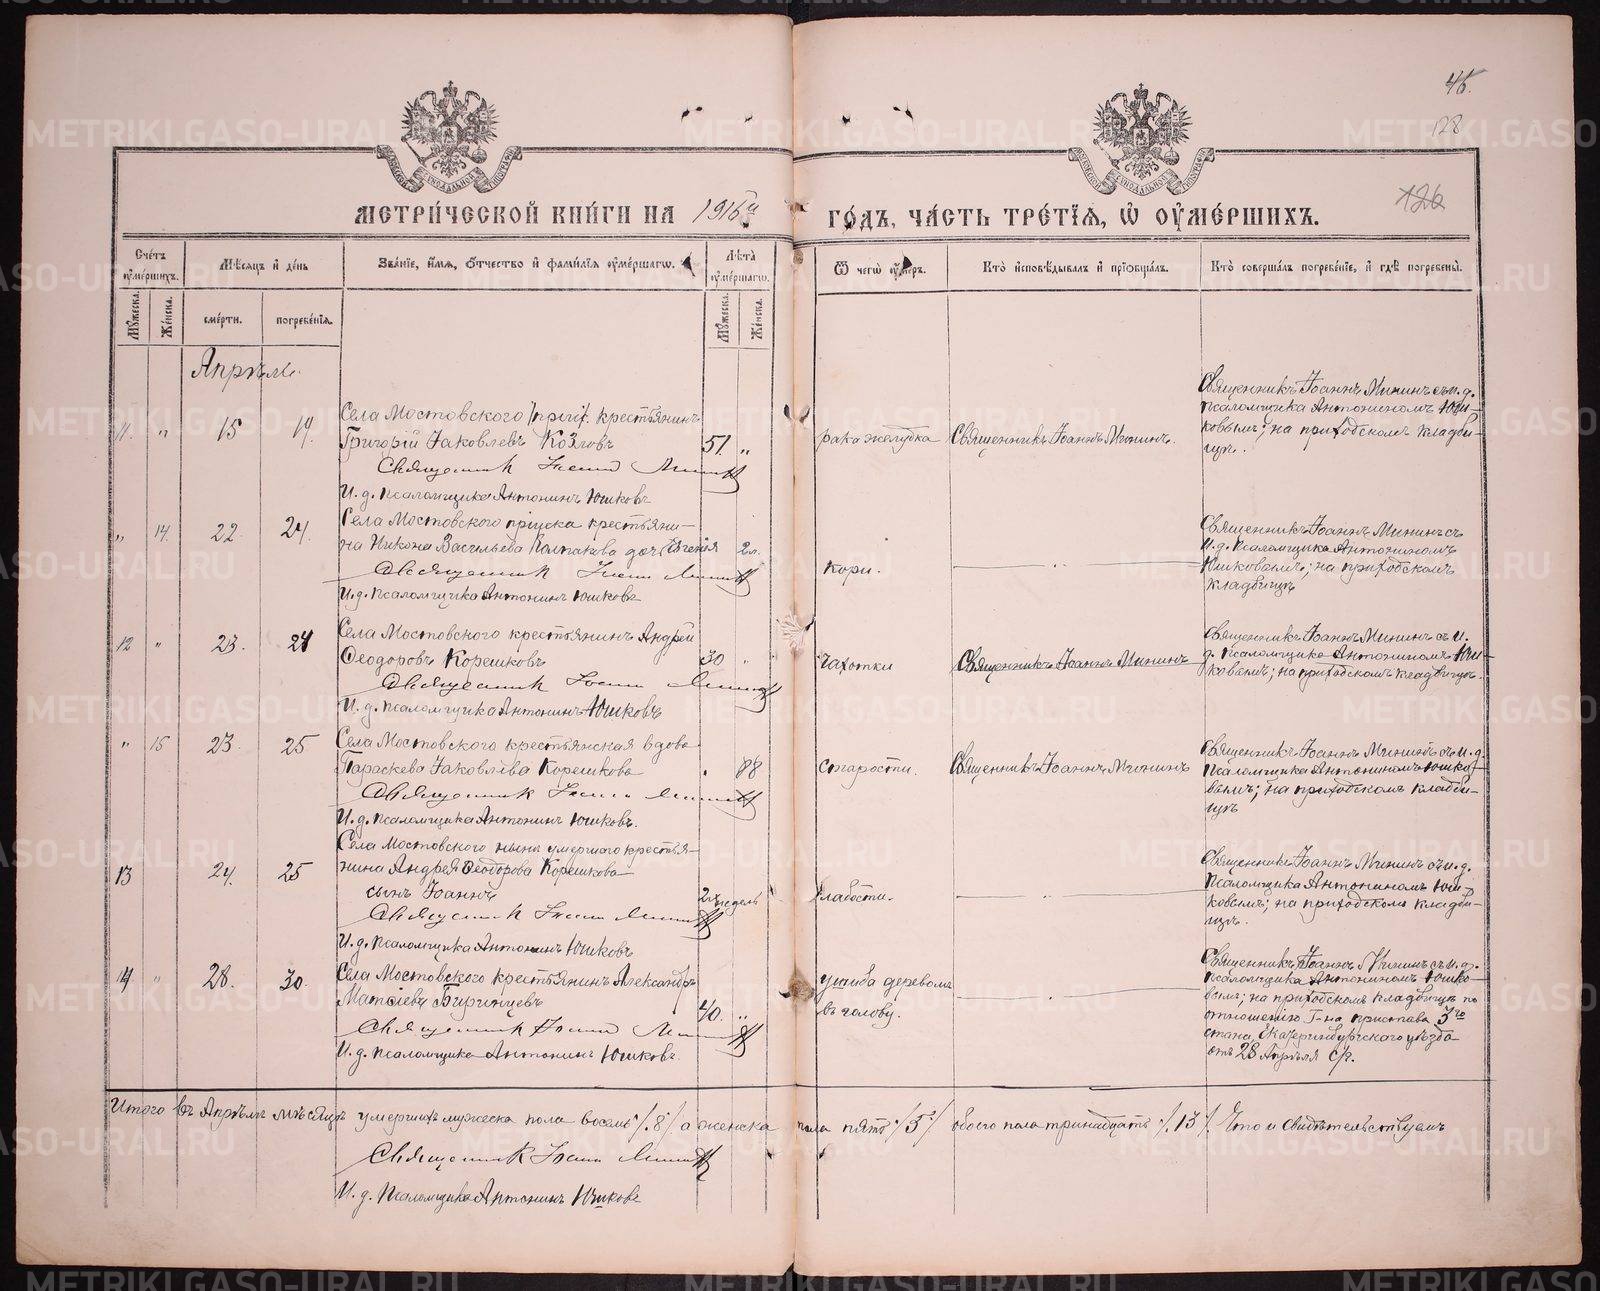 45.
128
126
МЕТРИ́ЧЕСКОЙ КНИ́ГИ НА 1916й ГО́ДЪ, ЧА́СТЬ ТРЕ́ТІѦ, Ѡ ОУ҆МЕ́РШИХЪ.
Сче́тъ оу҆ме́ршихъ.
Мꙋ́жеска.
Же́нска.
Мѣ́сѧцъ и҆ де́нь
сме́рти.
погребе́нїѧ.
Зва́нїе, и҆́мѧ, ѻ҆́тчество и҆ фами́лїѧ оу҆ме́ршагѡ.
Лѣ́та оу҆ме́ршагѡ.
Мꙋ́жеска.
Же́нска.
Ѿ чегѡ̀ оу҆́меръ.
Кто̀ и҆сповѣ́дывалъ и҆ прїѡбща́лъ.
Кто̀ соверша́лъ погребе́нїе, и҆ гдѣ̀ погребены̀.
Апрѣль.
11. " 15 17.
Села Мостовского крестьянинъ
Григорій Іаковлевъ Козловъ
51. "
Священник Іоанн Минин
И. д. псаломщика Антонинъ Юшковъ
рака желудка
Священникъ Іоаннъ Мининъ.
Священникъ Іоаннъ Мининъ съ и. д.
псаломщика Антониномъ Юш-
ковымъ; на приходскомъ кладби-
щѣ.
" 14. 22. 24.
Села Мостовского крестьяни-
на Никона Васильева Колпакова доч. Евгенія
2 л.
Священник Іоанн Минин
И. д. псаломщика Антонинъ Юшковъ
кори.
— " —
Священникъ Іоаннъ Мининъ съ
И. д. псаломщика Антониномъ
Юшковымъ; на приходскомъ
кладбищѣ
12 " 23. 24
Села Мостовского крестьянинъ Андрей
Ѳеодоровъ Корешковъ
30 "
Священник Іоанн Минин
И. д. псаломщика Антонинъ Юшковъ
Чахотки
Священникъ Іоаннъ Мининъ
Священникъ Іоаннъ Мининъ съ и.
д. псаломщика Антониномъ Юш-
ковымъ; на приходскомъ кладбищѣ.
" 15 23. 25
Села Мостовского крестьянская вдова
Параскева Іаковлева Корешкова
" 88
Священник Іоанн Минин
И. д. псаломщика Антонинъ Юшковъ.
Старости.
Священникъ Іоаннъ Мининъ
Священникъ Іоаннъ Мининъ съ и. д.
псаломщика Антониномъ Юшко-
вымъ; на приходскомъ кладби-
щѣ
13 24. 25
Села Мостовского нынѣ умершаго крестья-
нина Андрея Ѳеодорова Корешкова
сынъ Іоаннъ
2 недель
Священник Іоанн Минин
И. д. псаломщика Антонинъ Юшковъ
Слабости.
— " —
Священникъ Іоаннъ Мининъ съ и. д.
псаломщика Антониномъ Юш-
ковымъ; на приходскомъ кладби-
щѣ.
14 " 28. 30.
Села Мостовского крестьянинъ Александръ
40. "
Священник Іоанн Минин
И. д. псаломщика Антонинъ Юшковъ.
ушиба деревомъ
въ голову.
— " —
Священникъ Іоаннъ Мининъ съ и. д.
псаломщика Антониномъ Юшко-
вымъ; на приходскомъ кладбищѣ по
отношенію Г-на пристава 3го
стана, Екатеринбургского уѣзда
отъ 28 Апрѣля с/г.
Итого въ Апрѣлѣ мѣсяцѣ умершихъ мужеска пола восемь /8/ а женска пола пять /5/ обоего пола тринадцать /13/. Что и свидѣтельствуемъ
Священник Іоанн Минин
И. д. Псаломщика Антонинъ Юшковъ
METRIKI.GASO-URAL.RU